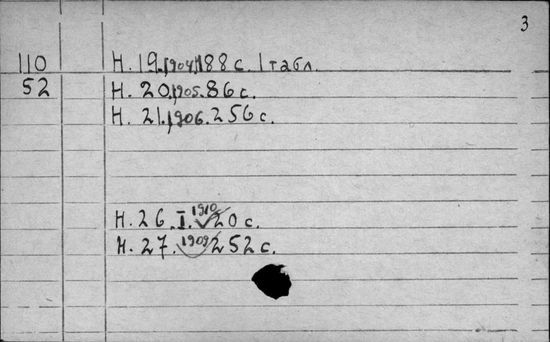 3
110 Н. 19. 1904. 188 с. 1 табл.
52 Н. 20. 1905. 86 с.
Н. 21. 1906. 256 с.
Н. 26. I. 1910 20 с.
Н. 27. 1909 252 с.